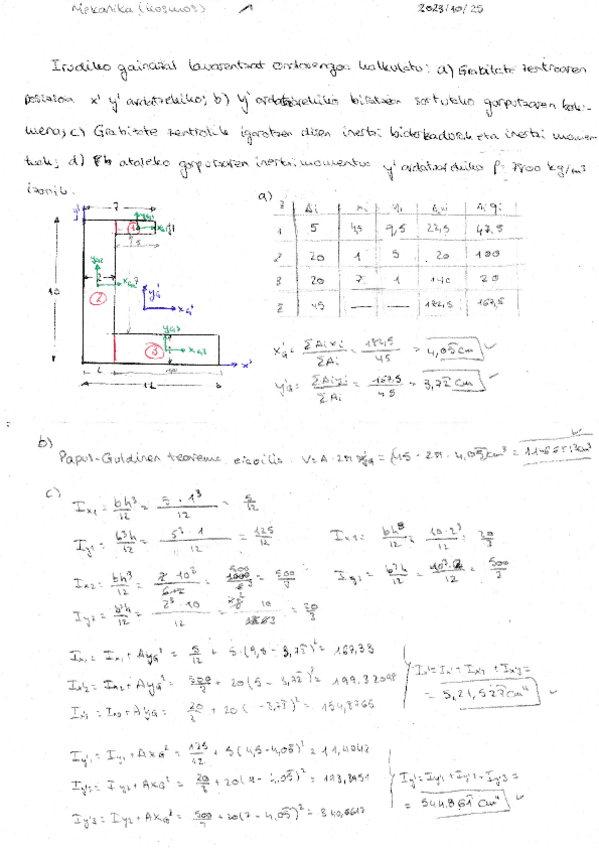 Mekanika (Kosmos)
1
2023/10/25
Irudiko gainazal lauarentzat ondorengoa kalkulatu: a) Grabitate zentroaren
posizioa x' y' ardatzekiko; b) y' ardatzarekiko biratzean sortutako gorputzaren bolu-
mena; c) Grabitate zentrotik igarotzen diren inertzi biderkadurak eta inertzi momen-
tuak; d) ataleko gorputzaren inertzi momentua y' ardatzarekiko ρ= 7800 kg/m³
izanik.
a)
Ai xi yi Aixi Aiyi
1 5 4,5 9,5 22,5 47,5
2 20 1 5 20 100
3 20 7 1 140 20
Σ 45 — — 182,5 167,5
x'G = ΣAixi / ΣAi = 182,5 / 45 = 4,05 cm
y'G = ΣAiyi / ΣAi = 167,5 / 45 = 3,72 cm
7
y'
10
2
xG
yG
x'
12
b)
Papus-Guldinen teorema V = A · 2π xG = (45 · 2π · 4,05) cm³ =
c)
Ix1 = bh³/12 = 5 · 1³/12 = 5/12
Iy1 = b³h/12 = 5³ · 1/12 = 125/12
Ix3 = bh³/12 = 10 · 2³/12 = 20/3
Ix2 = bh³/12 = 2 · 10³/12 = 500/3
Iy3 = b³h/12 = 10³ · 2/12 = 500/3
Iy2 = b³h/12 = 2³ · 10/12 = 20/3
Ix'1 = Ix1 + AyG² = 5/12 + 5 · (9,5 - 3,72)² = 167,33
Ix'2 = Ix2 + AyG² = 500/3 + 20(5 - 3,72)² = 199,32098
Ix'3 = Ix3 + AyG² = 20/3 + 20( -2,72)² = 154,8765
Ix' = Ix'1 + Ix'2 + Ix'3 =
= 521,527 cm⁴
Iy'1 = Iy1 + AxG² = 125/12 + 5(4,5 - 4,05)² = 11,4042
Iy'2 = Iy2 + AxG² = 20/3 + 20(1 - 4,05)² =
Iy'3 = Iy2 + AxG² = 500/3 + 20(7 - 4,05)² = 340,6617
Iy' = Iy'1 + Iy'2 + Iy'3 =
= 544,861 cm⁴